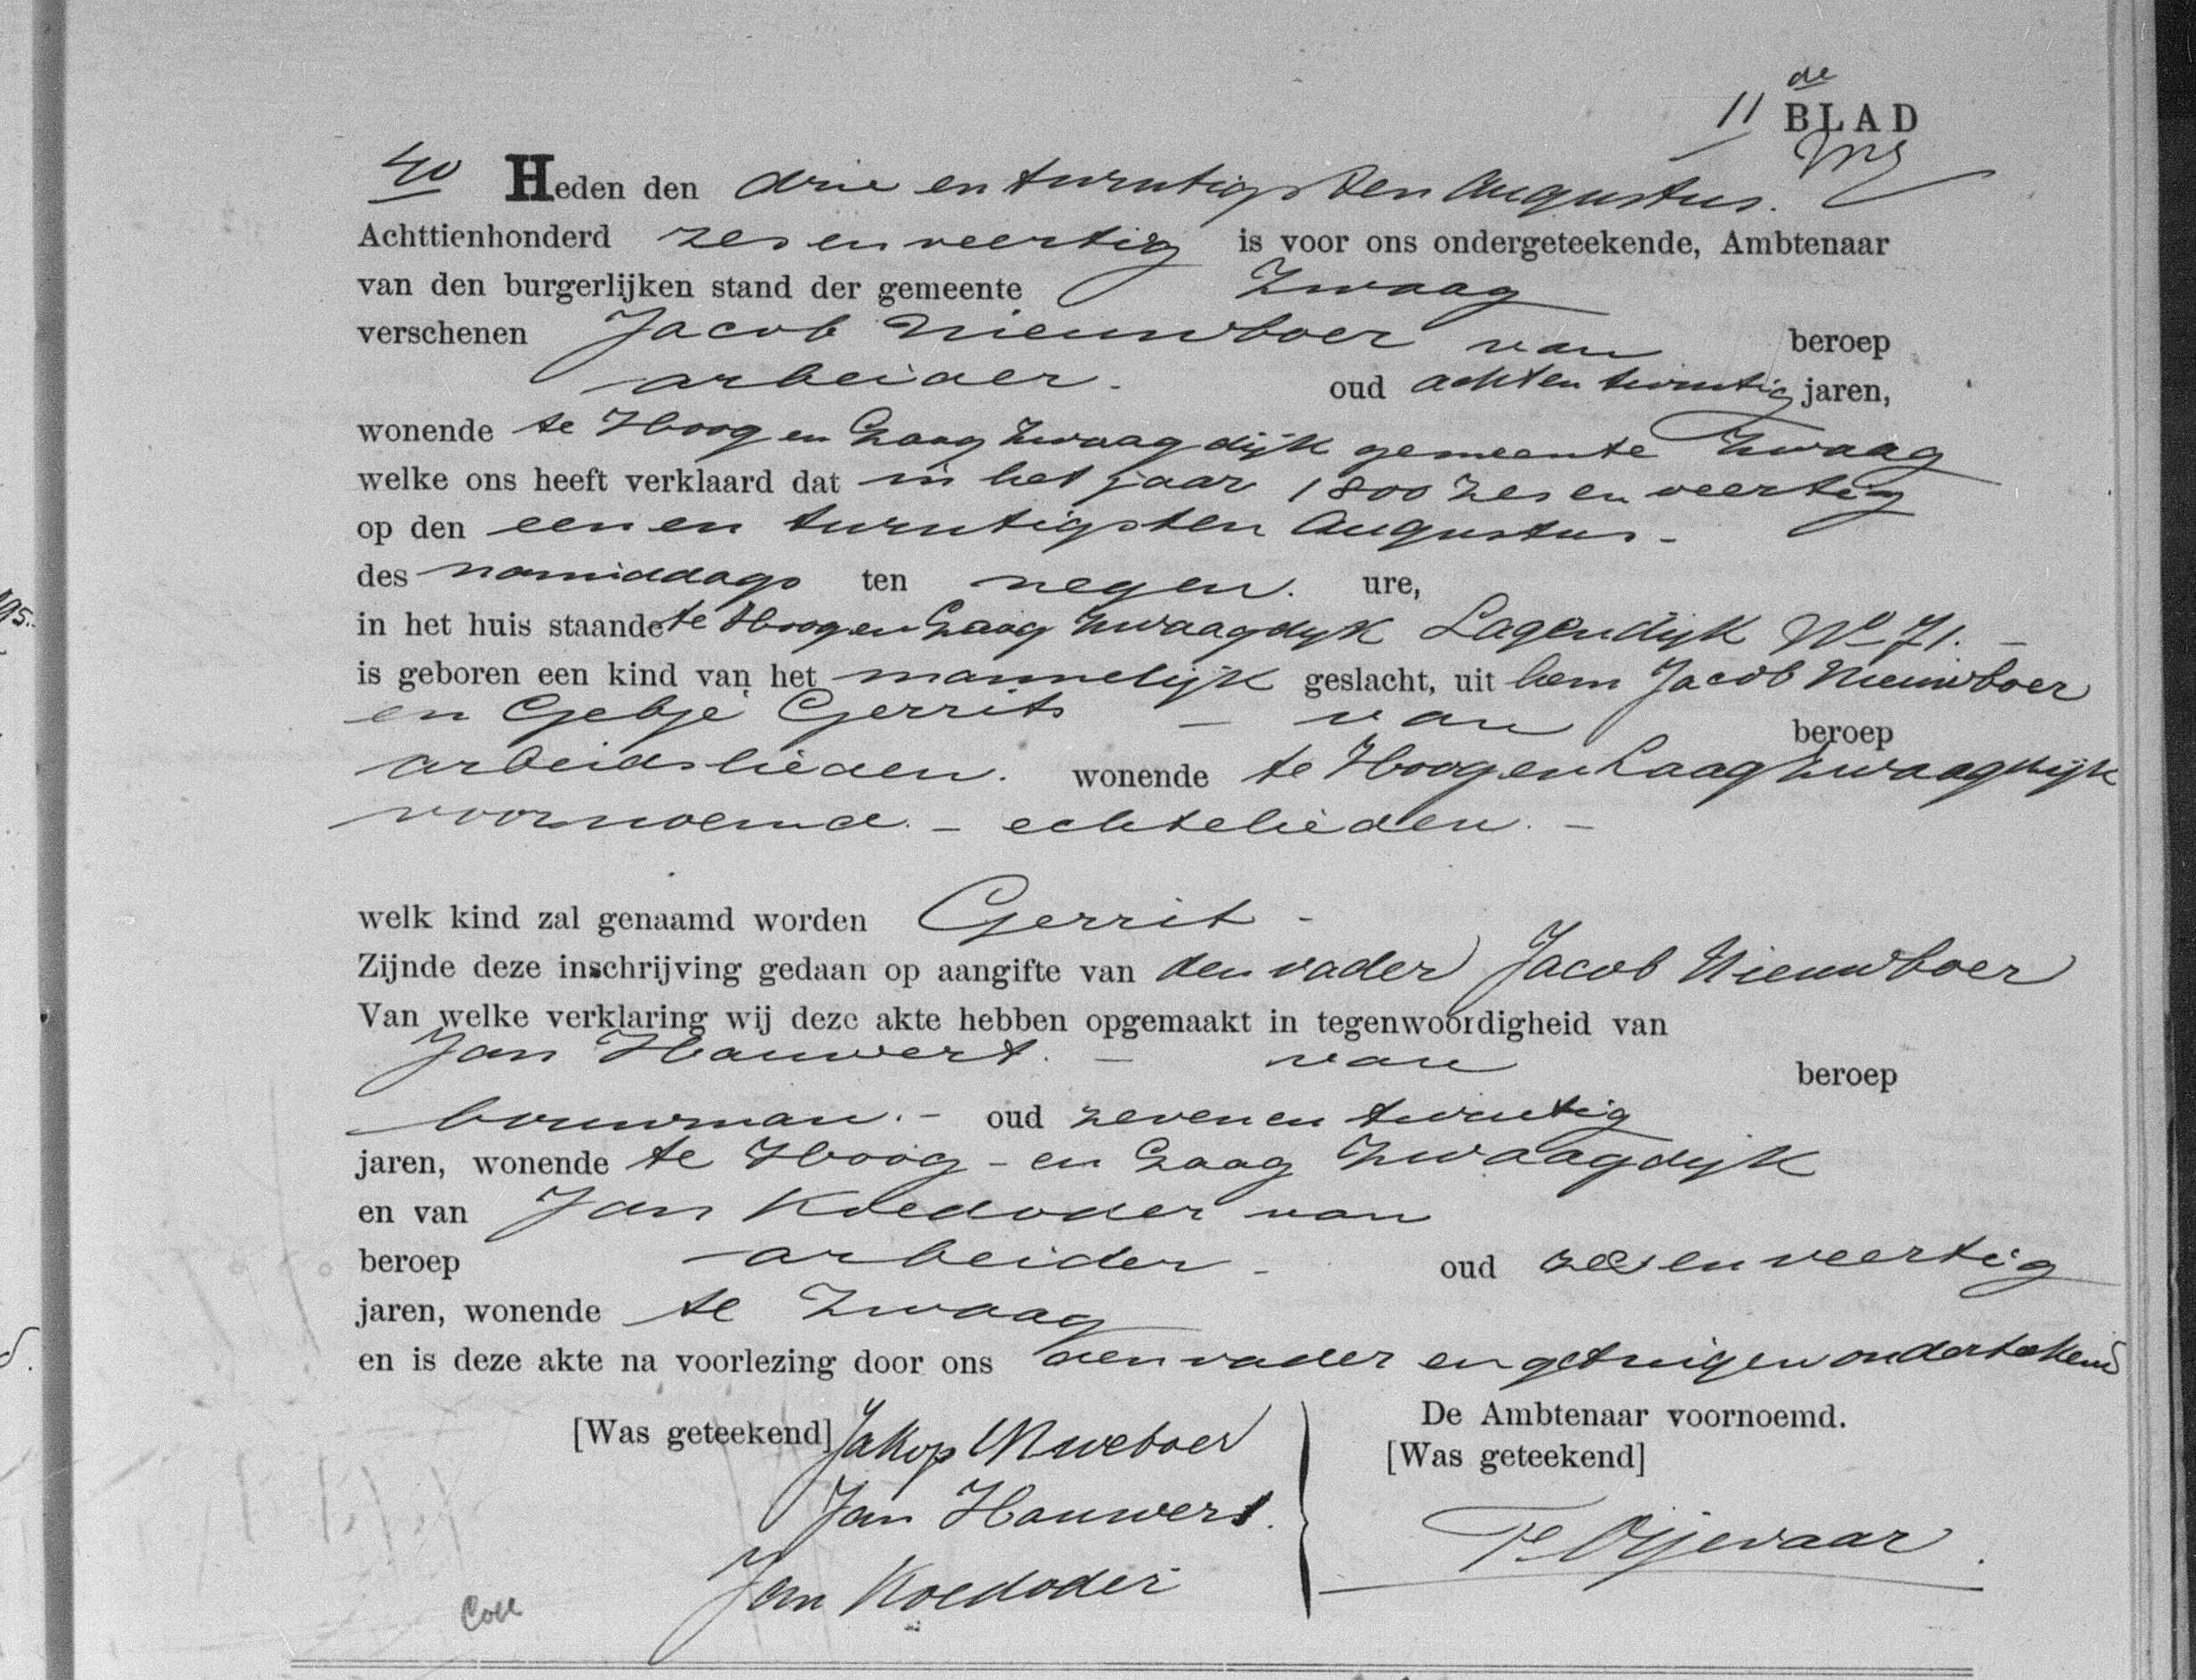 11de BLAD
40 Heden den drie en twintigsten Augustus.
Achttienhonderd zes en veertig is voor ons ondergeteekende, Ambtenaar
van den burgerlijken stand der gemeente Zwaag
verschenen Jacob Nieuwboer van beroep
arbeider. oud achtentwintig jaren,
wonende te Hoog en Laag Zwaagdijk gemeente Zwaag
welke ons heeft verklaard dat in het jaar 1800 zes en veertig
op den een en twintigsten Augustus -
des namiddags ten negen. ure,
in het huis staande te Hoog en Laag Zwaagdijk Lagendijk No 71. -
is geboren een kind van het mannelijk geslacht, uit hem Jacob Nieuwboer
en Gebje Gerrits - van beroep
arbeidslieden. wonende te Hoog en Laag Zwaagdijk
voornoemd. - echtelieden. -
welk kind zal genaamd worden Gerrit -
Zijnde deze inschrijving gedaan op aangifte van den vader Jacob Nieuwboer
Van welke verklaring wij deze akte hebben opgemaakt in tegenwoordigheid van
Jan Hauwert. - van beroep
bouwman. - oud zeven en twintig
jaren, wonende te Hoog - en Laag Zwaagdijk
en van Jan Koedoder van
beroep arbeider - oud zes en veertig
jaren, wonende te Zwaag
en is deze akte na voorlezing door ons den vader en getuigen ondertekend
[Was geteekend] Jakop Nuweboer
De Ambtenaar voornoemd.
[Was geteekend]
Jan Hauwert.
Jan Koedoder
Coll